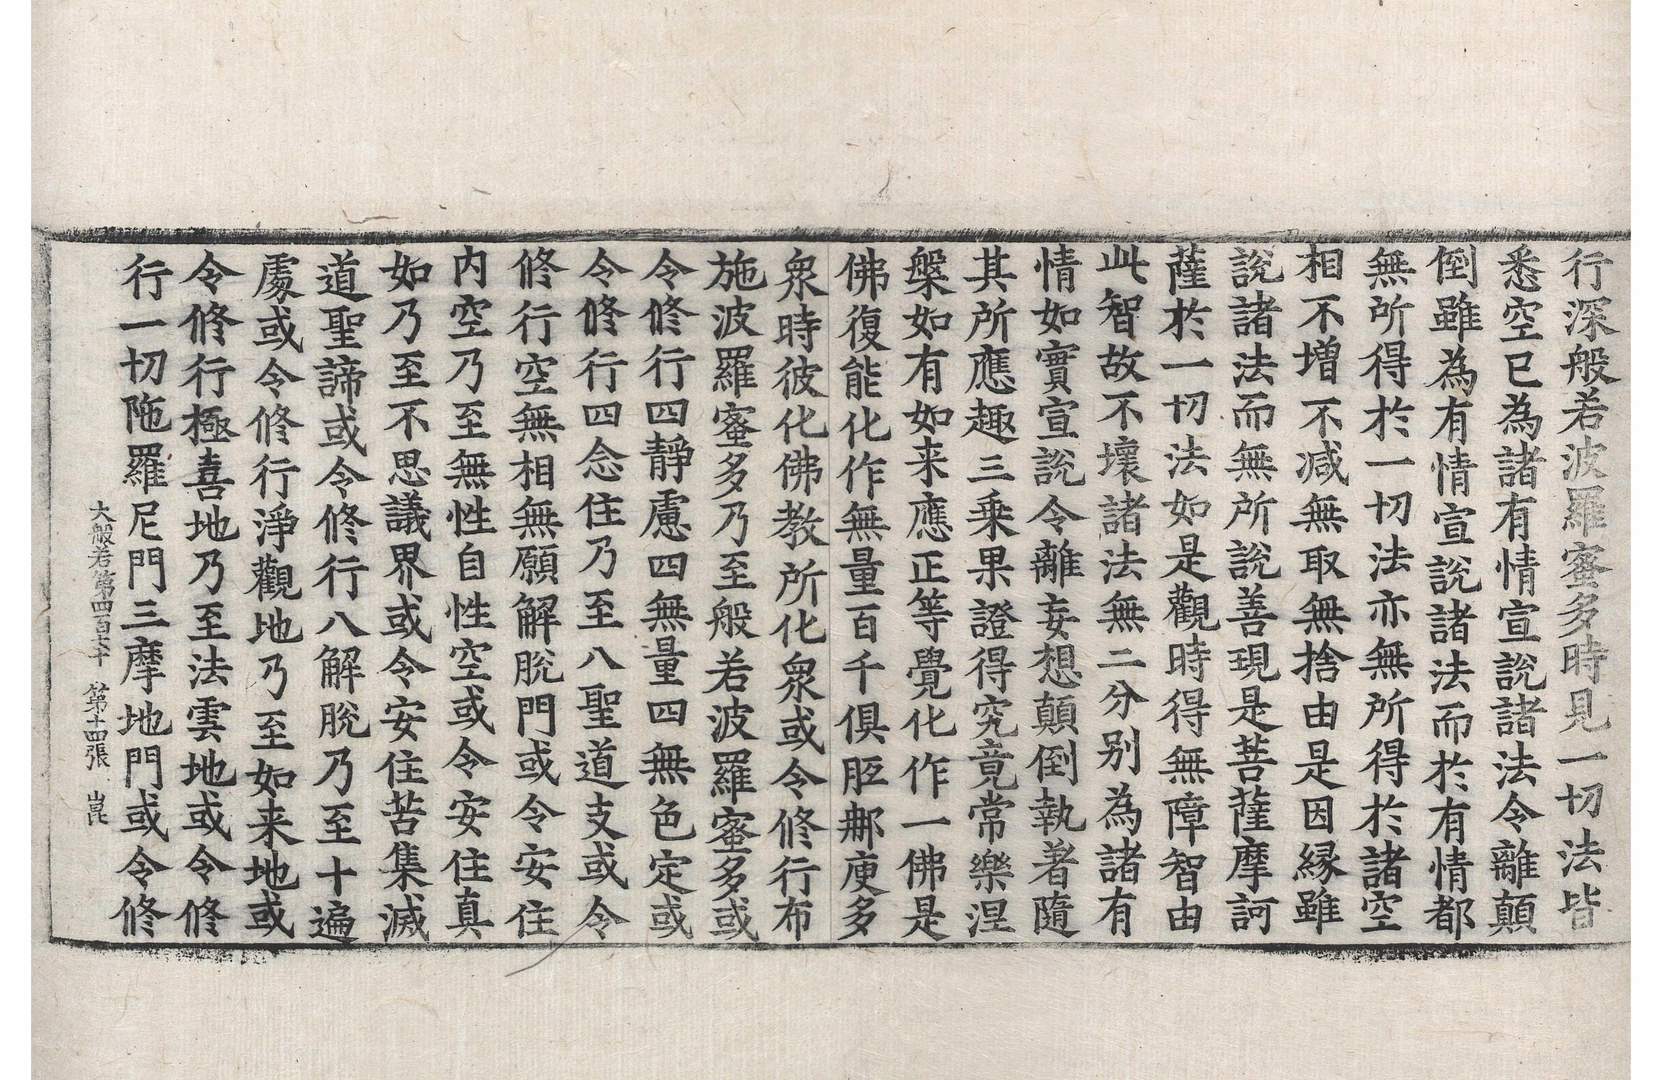 行深般若波羅蜜多時見一切法皆
悉空已為諸有情宣說諸法令離顛
倒雖為有情宣說諸法而於有情都
無所得於一切法亦無所得於諸空
相不增不減無取無捨由是因緣雖
說諸法而無所說善現是菩薩摩訶
薩於一切法如是觀時得無障智由
此智故不壞諸法無二分別為諸有
情如實宣說令離妄想顛倒執著隨
其所應趣三乗果證得究竟常樂涅
槃如有如来應正等覺化作一佛是
佛復能化作無量百千俱胝那庾多
衆時彼化佛教所化衆或令修行布
施波羅蜜多乃至般若波羅蜜多或
令修行四靜慮四無量四無色定或
令修行四念住乃至八聖道支或令
修行空無相無願解脫門或令安住
內空乃至無性自性空或令安住真
如乃至不思議界或令安住苦集滅
道聖諦或令修行八解脫乃至十遍
處或令修行淨觀地乃至如来地或
令修行極喜地乃至法雲地或令修
行一切陁羅尼門三摩地門或令修
大般若第四百七十 第十四張 崑